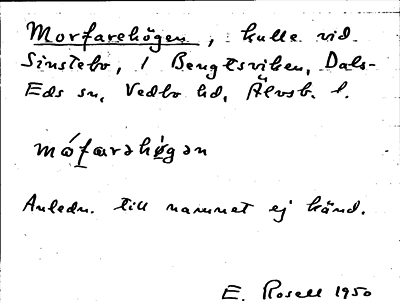 Morfarehögen, kulle vid
Sinstebo, 1 Bengtsviken, Dals-
Eds sn, Vedbo hd, Älvsb. l.
måfarahøgan
Anledn. till namnet ej känd.
E. Rosell 1950